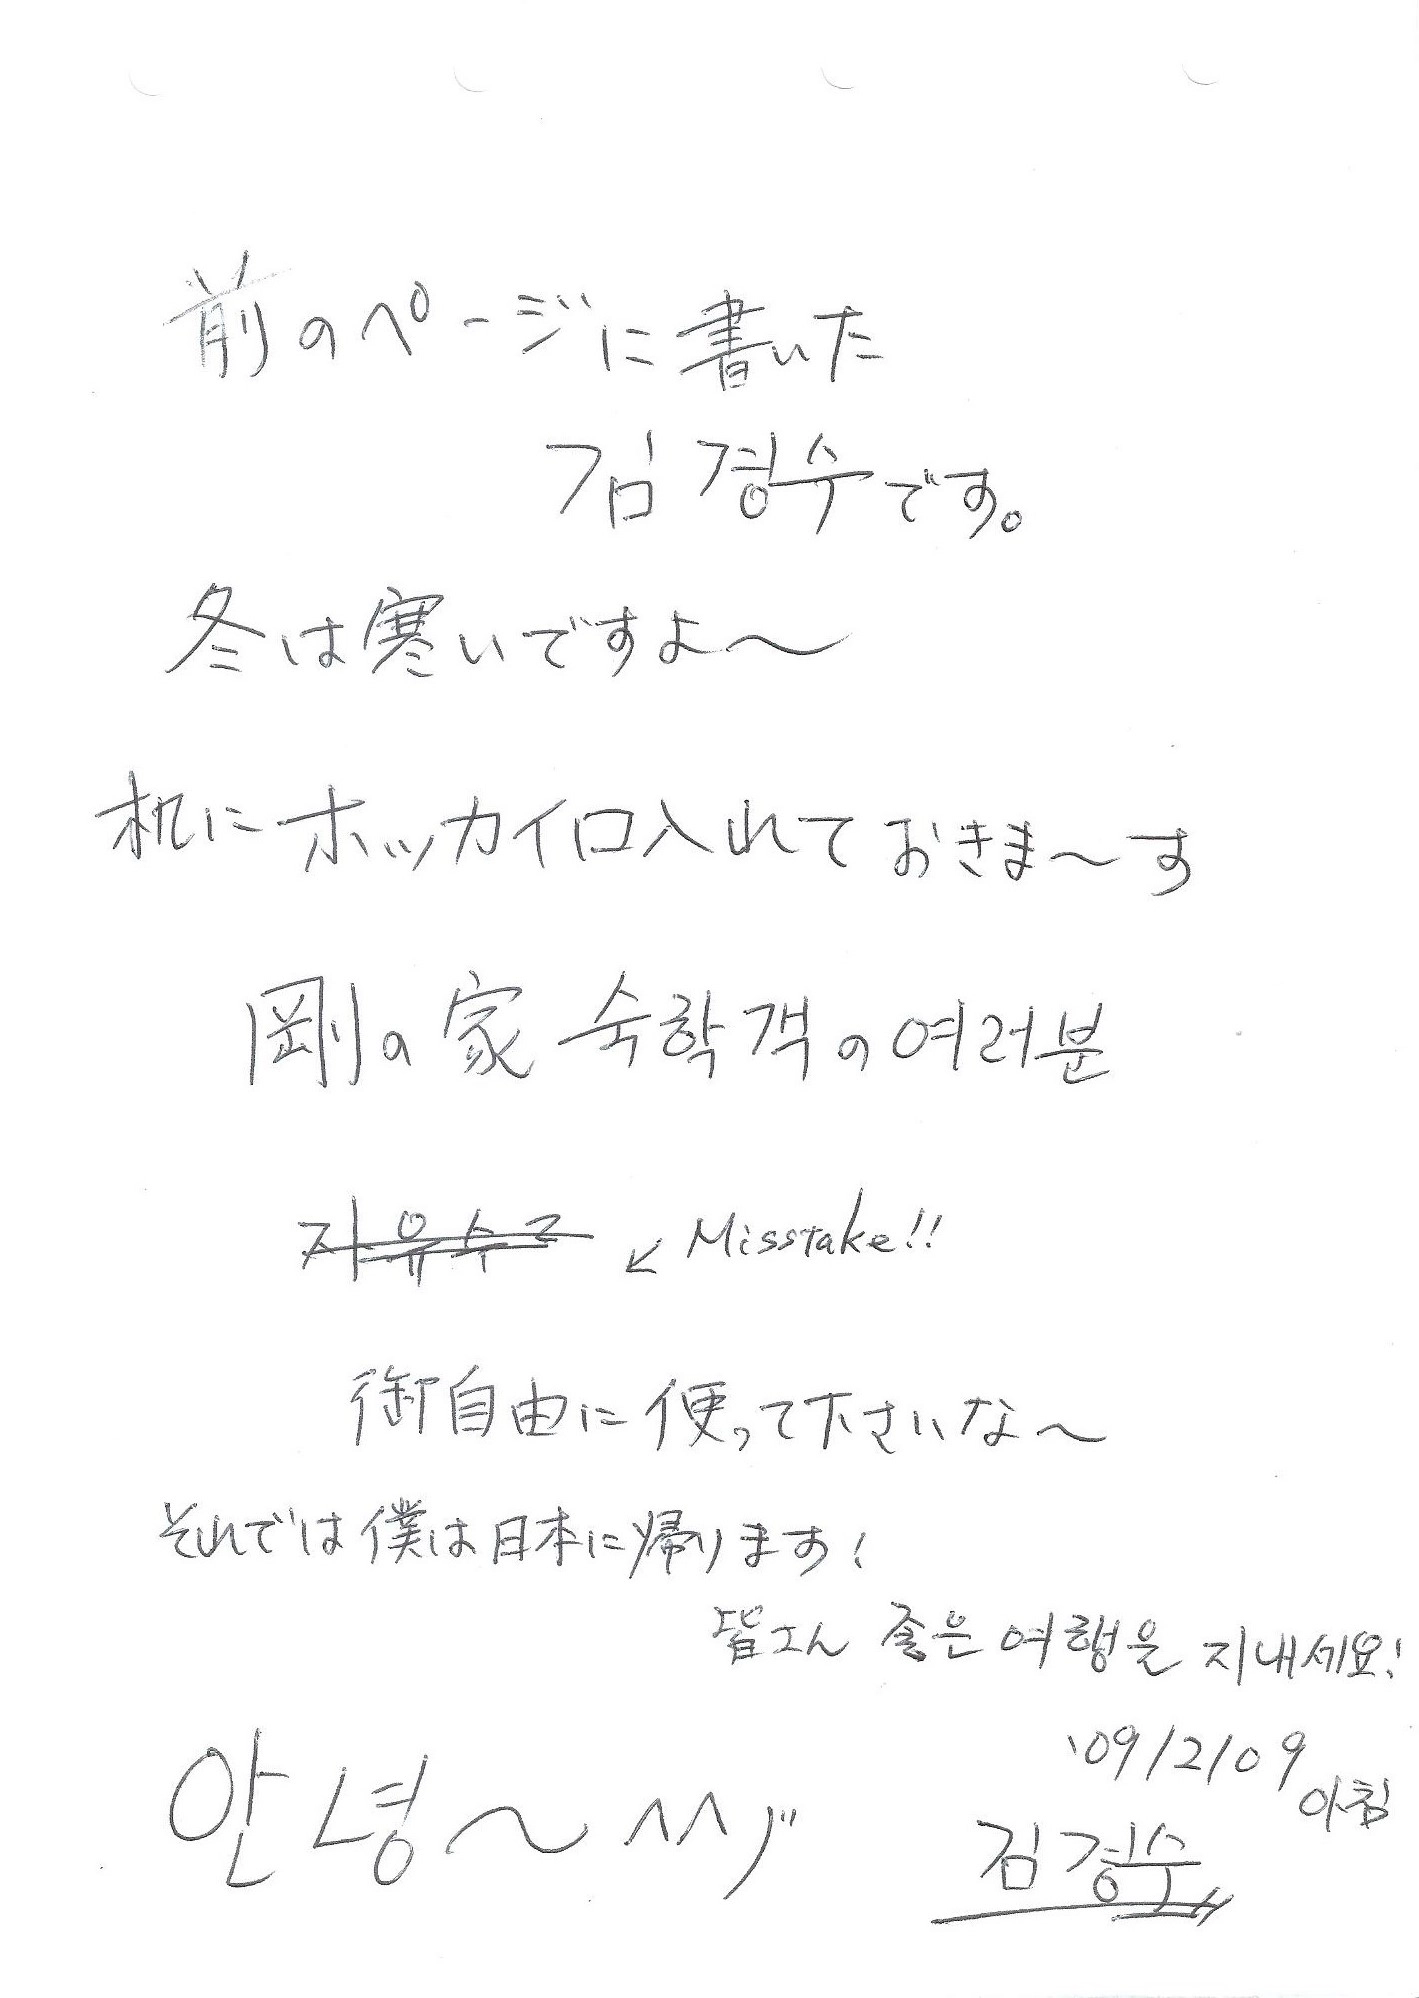 前のページに書いた
김경수です。
冬は寒いですよ～
机にホッカイロ入れておきま～す
剛の家 숙학객の여러분
자유수고 ↙ Misstake!!
御自由に便って下さいな～
それでは僕は日本に帰ります!
皆さん 좋은 여행을 지내세요!
'09/2/09
아침
안녕~ ^^ゞ
김경수